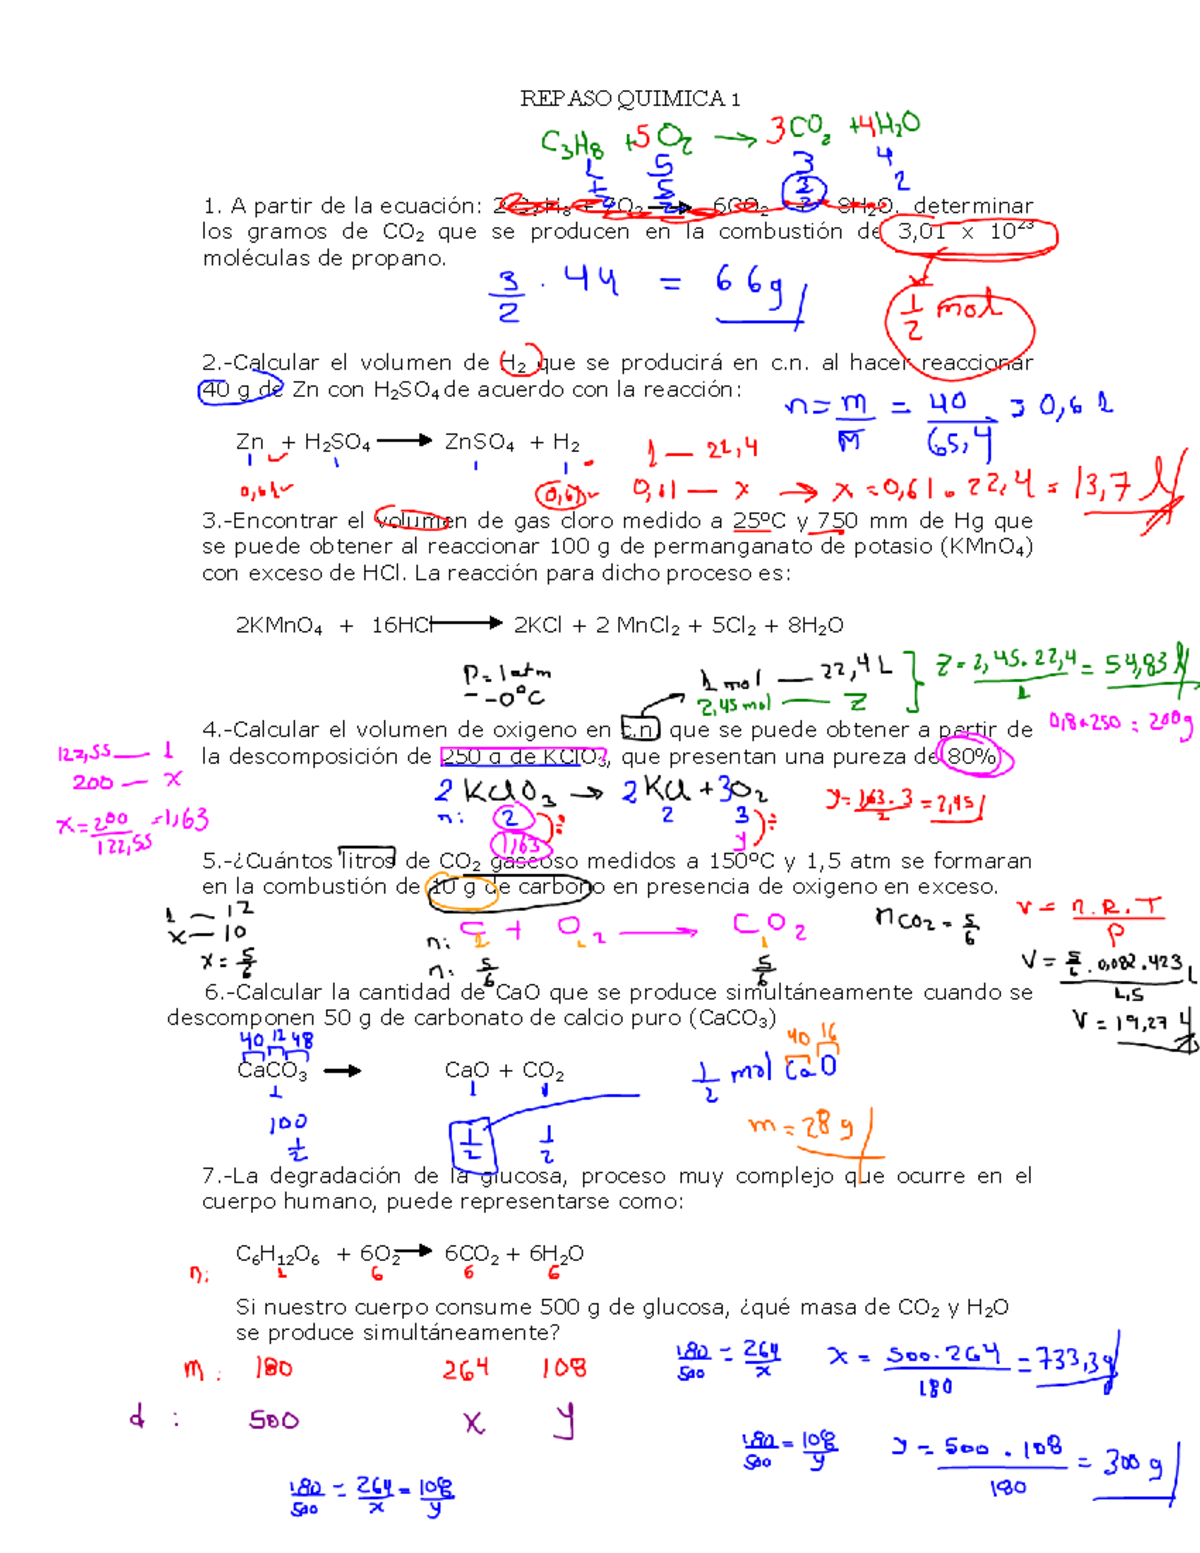 REPASO QUIMICA 1
C₃H₈ + 5O₂ → 3CO₂ + 4H₂O
5 3 4
2
1. A partir de la ecuación: 6CO₂ 8H₂O, determinar
los gramos de CO₂ que se producen en la combustión de 3,01 x 10²³
moléculas de propano.
3/2 . 44 = 66g
1/2 mol
2.-Calcular el volumen de H₂ que se producirá en c.n. al hacer reaccionar
40 g de Zn con H₂SO₄ de acuerdo con la reacción:
n = m/M = 40/65,4 = 0,61
Zn + H₂SO₄ → ZnSO₄ + H₂
1 1 1 1
1 — 22,4
0,61 0,61
0,61 — x → x = 0,61 . 22,4 = 13,7 l
3.-Encontrar el volumen de gas cloro medido a 25ºC y 750 mm de Hg que
se puede obtener al reaccionar 100 g de permanganato de potasio (KMnO₄)
con exceso de HCl. La reacción para dicho proceso es:
2KMnO₄ + 16HCl → 2KCl + 2 MnCl₂ + 5Cl₂ + 8H₂O
P=1atm
0°C
1 mol — 22,4 L
2,45 mol — z
z = 2,45.22,4/1 = 54,83 l
4.-Calcular el volumen de oxigeno en c.n. que se puede obtener a partir de
la descomposición de 250 g de KClO₃, que presentan una pureza de 80%
0,8 . 250 = 200g
122,55 — 1
200 — x
x = 200/122,55 = 1,63
2 KClO₃ → 2 KCl + 3O₂
n: 2 2 3
1,63 y
y = 1,63 . 3/2 = 2,45
5.-¿Cuántos litros de CO₂ gaseoso medidos a 150ºC y 1,5 atm se formaran
en la combustión de 10 g de carbono en presencia de oxigeno en exceso.
1 — 12
x — 10
x = 5/6
C + O₂ → CO₂
n: 1 1 1
n: 5/6 5/6
nCO₂ = 5/6
V = n.R.T/P
V = 5/6 . 0,082 . 423/1,5 L
V = 19,27 l
6.-Calcular la cantidad de CaO que se produce simultáneamente cuando se
descomponen 50 g de carbonato de calcio puro (CaCO₃)
40 12 48
CaCO₃ → CaO + CO₂
1 1 1
100
1/2 1/2 1/2
40 16
1/2 mol CaO
m = 28 g
7.-La degradación de la glucosa, proceso muy complejo que ocurre en el
cuerpo humano, puede representarse como:
C₆H₁₂O₆ + 6O₂ → 6CO₂ + 6H₂O
n: 1 6 6 6
Si nuestro cuerpo consume 500 g de glucosa, ¿qué masa de CO₂ y H₂O
se produce simultáneamente?
m: 180 264 108
d: 500 x y
180/500 = 264/x x = 500.264/180 = 733,3g
180/500 = 108/y y = 500 . 108/180 = 300 g
180/500 = 264/x = 108/y